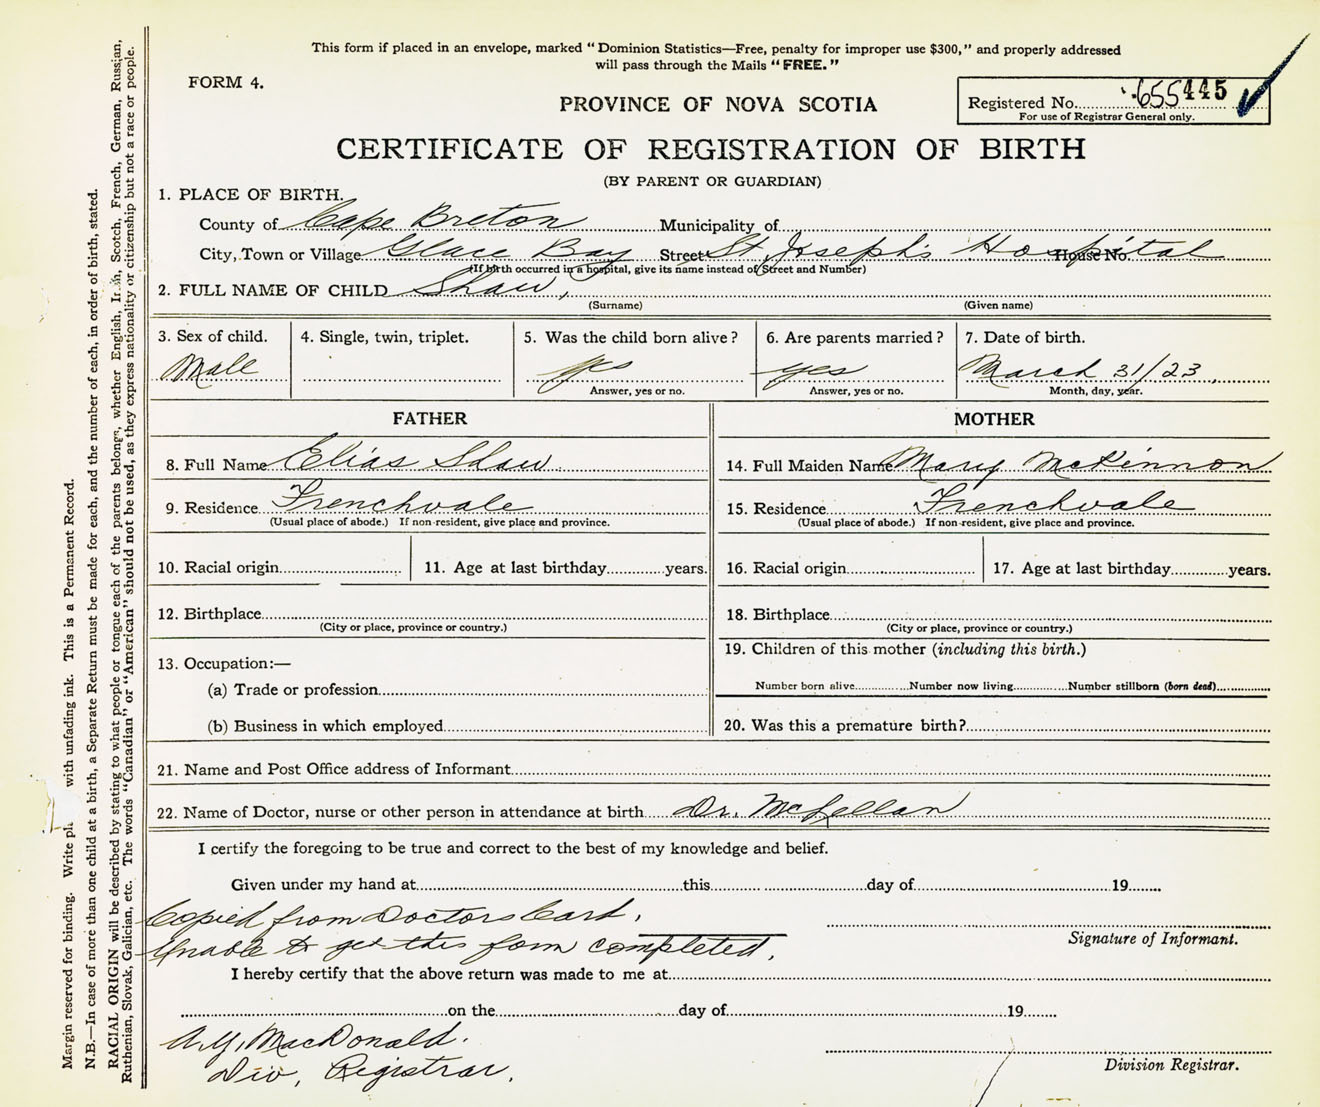 This form if placed in an envelope, marked "Dominion Statistics—Free, penalty for improper use $300," and properly addressed
will pass through the Mails "FREE."
FORM 4.
PROVINCE OF NOVA SCOTIA
Registered No. 655445
For use of Registrar General only.
CERTIFICATE OF REGISTRATION OF BIRTH
(BY PARENT OR GUARDIAN)
1. PLACE OF BIRTH.
County of Cape Breton Municipality of
City, Town or Village Glace Bay Street St. Joseph's Hospital House No.
(If birth occurred in a hospital, give its name instead of Street and Number)
2. FULL NAME OF CHILD Shaw,
(Surname) (Given name)
3. Sex of child. 4. Single, twin, triplet. 5. Was the child born alive? 6. Are parents married? 7. Date of birth.
Male yes yes March 31/23
Answer, yes or no. Answer, yes or no. Month, day, year.
FATHER MOTHER
8. Full Name Elias Shaw 14. Full Maiden Name Mary McKinnon
9. Residence Frenchvale 15. Residence Frenchvale
(Usual place of abode.) If non-resident, give place and province. (Usual place of abode.) If non-resident, give place and province.
10. Racial origin 11. Age at last birthday years. 16. Racial origin 17. Age at last birthday years.
12. Birthplace 18. Birthplace
(City or place, province or country.) (City or place, province or country.)
19. Children of this mother (including this birth.)
13. Occupation:—
(a) Trade or profession Number born alive Number now living Number stillborn (born dead)
(b) Business in which employed 20. Was this a premature birth?
21. Name and Post Office address of Informant
22. Name of Doctor, nurse or other person in attendance at birth Dr. McLellan
I certify the foregoing to be true and correct to the best of my knowledge and belief.
Given under my hand at this day of 19
Copied from Doctors Card.
Signature of Informant.
Unable to get this form completed.
I hereby certify that the above return was made to me at
on the day of 19
A.Y. MacDonald.
Div, Registrar.
Division Registrar.
Margin reserved for binding. Write with unfading ink. This is a Permanent Record.
N.B.—In case of more than one child at a birth, a Separate Return must be made for each, and the number of each, in order of birth, stated.
RACIAL ORIGIN will be described by stating to what people or tongue each of the parents belongs, whether English, Irish, Scotch, French, German, Russian,
Ruthenian, Slovak, Galician, etc. The words "Canadian" or "American" should not be used, as they express nationality or citizenship but not a race or people.